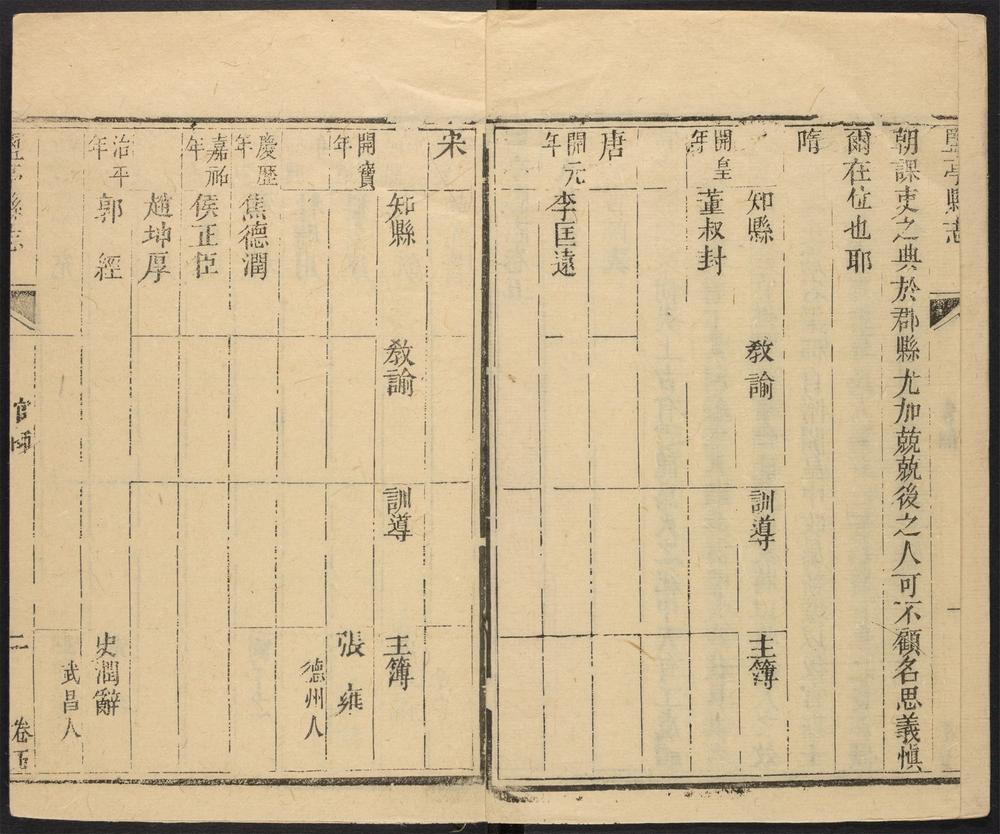 鹽亭縣志
朝課吏之典於郡縣尤加兢兢後之人可不顧名思義慎
爾在位也耶
隋
知縣 教諭 訓導 主簿
開皇年 董叔封
唐
開元年 李匡遠
宋
知縣 教諭 訓導 主簿
開寶年 張雍
德州人
慶歷年 焦德潤
嘉祐年 侯正臣
趙坤厚
治平年 郭經 史潤辭
武昌人
鹽亭縣志 官師 二